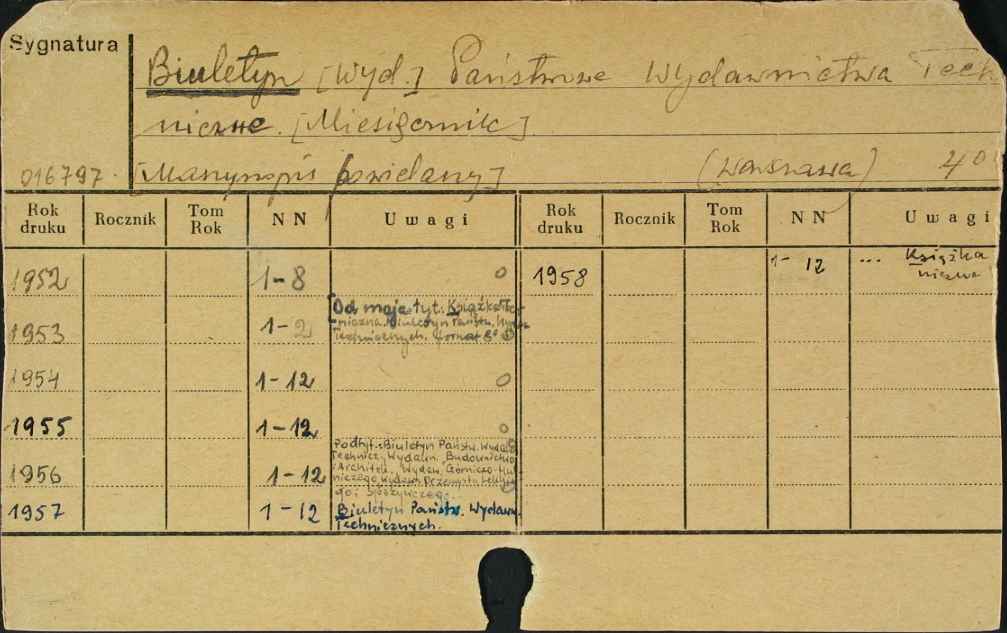 Sygnatura
Biuletyn [Wyd.] Państwowe Wydawnictwa Tech
niczne. [Miesięcznik]
016797. [Maszynopis powielany] (Warszawa) 4°
Rok druku Rocznik Tom Rok NN Uwagi Rok druku Rocznik Tom Rok NN Uwagi
1952 1-8 0 1958 1-12 ... Książka
1953 1-2 Od maja tyt. Książka Te-
chniczna. Biuletyn Państw. Wydaw.
Technicznych. format 8°
1954 1-12 0
1955 1-12 0
Podtyt.: Biuletyn Państw. Wydaw.
Technicz. Wydawn. Budownictwo
1956 1-12 i Architek. Wydaw. Górniczo-Hut-
niczego, Wydawn. Przemysłu Lekkie-
go i Spożywczego.
1957 1-12 Biuletyn Państw. Wydawn.
Technicznych.